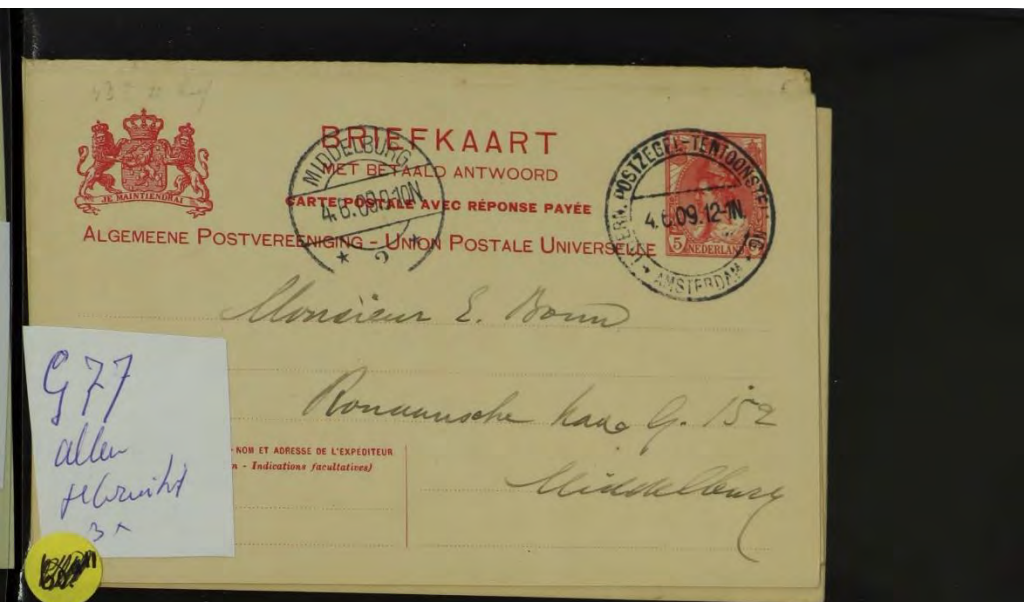 BRIEFKAART
MET BETAALD ANTWOORD
CARTE POSTALE AVEC RÉPONSE PAYÉE
ALGEMEENE POSTVEREENIGING - UNION POSTALE UNIVERSELLE
JE MAINTIENDRAI
MIDDELBURG
4.6.09
2
POSTZEGEL-TENTOONSTELLING
4.6.09.12-1N.
AMSTERDAM
5 NEDERLAND
Monsieur E. Boun
kade G. 152
Middelburg
NOM ET ADRESSE DE L'EXPÉDITEUR
n - Indications facultatives)
G 77
allen
gebruikt
3 x